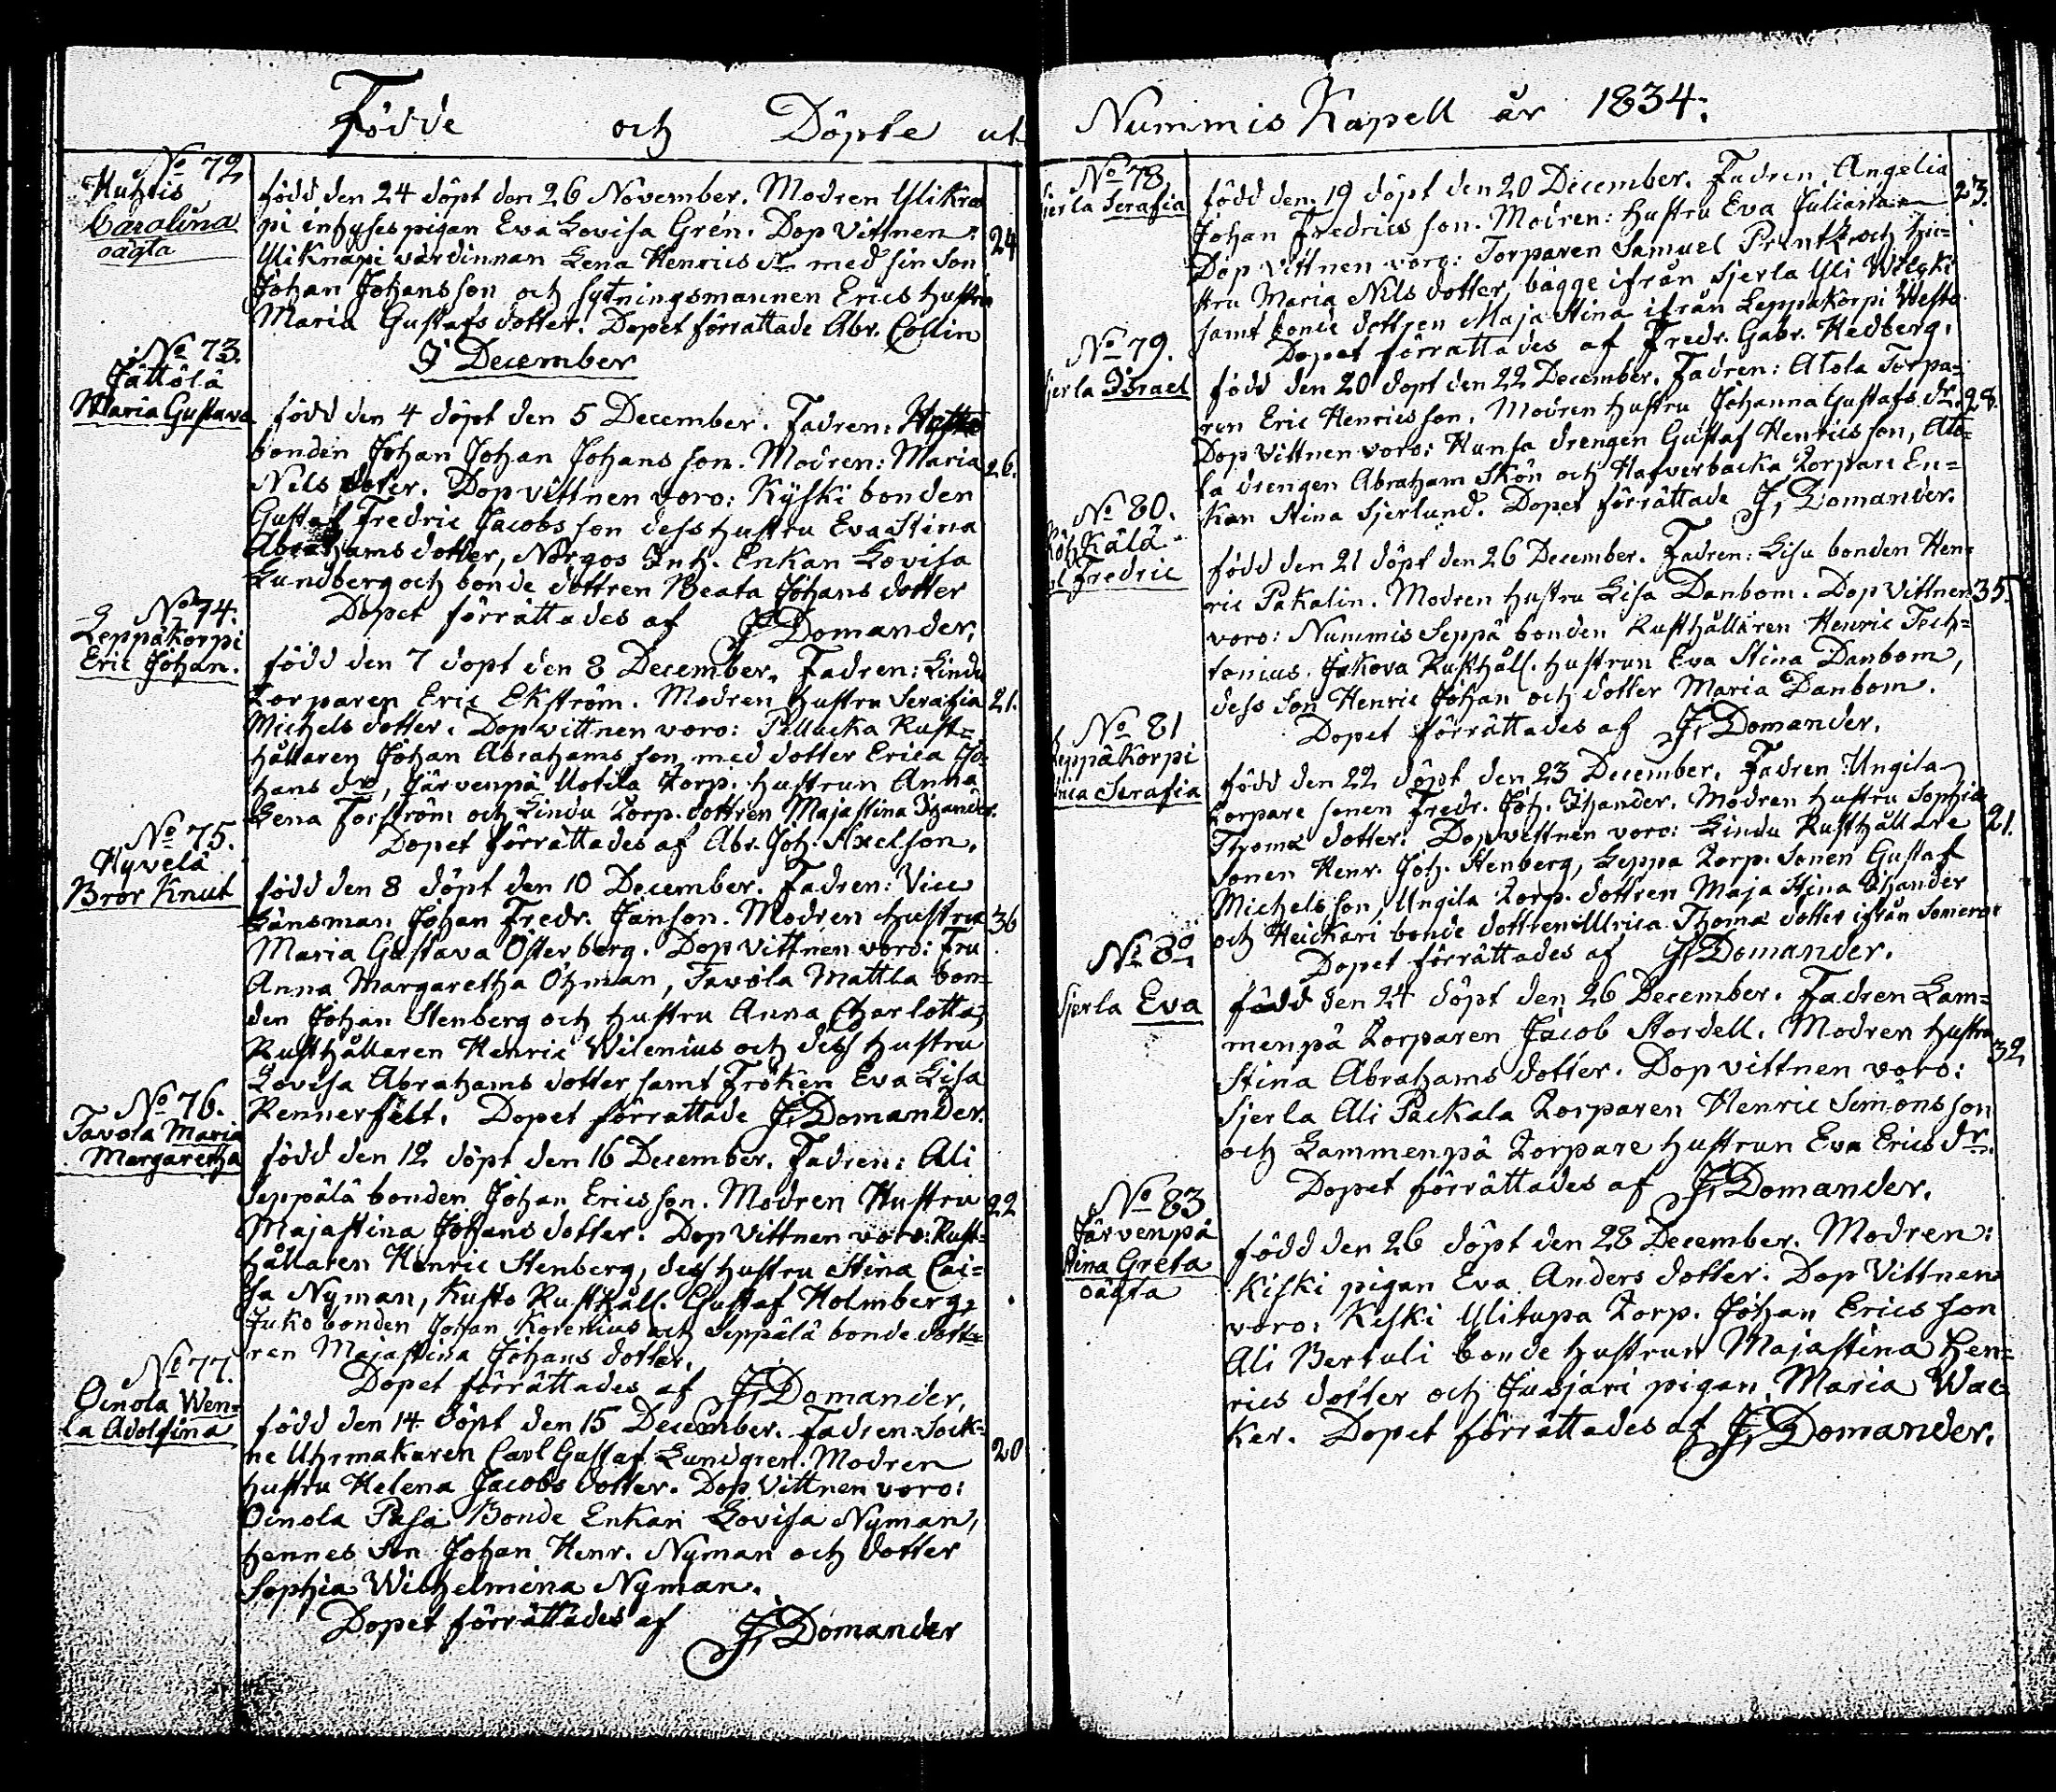 Födde och Döpte ut
No 72
Huhtis
Carolina
oägta
född den 24 döpt den 26 November. Modren Ylikna
pi inhyses pigan Eva Lovisa Grén. Dop Vittnen:
Yliknapi värdinnan Lena Henrics dr med sin Son
Johan Johansson och sytningsmannen Erics hustru
Maria Gustafs dotter. Dopet förrättade Abr. Collin
24
I December
No 73.
Jättölä
Maria Gustava
född den 4 döpt den 5 December. Fadren:
bonden Johan Johan Johans son. Modren: Maria
Nils doter. Dop vittnen voro: Kyski bonden
Gustaf Fredric Jacobs son dess hustru Eva Stina
Abrahams dotter, Norgos Inh. Enkan Lovisa
Lundberg och bonde dottren Beata Johans dotter
Dopet förrättades af J. Domander.
26.
No 74.
Leppäkorpi
Eric Johan.
född den 7 döpt den 8 December. Fadren: Lindu
Torparen Eric Ekström. Modren hustru Serafia
Michels dotter. Dopvittnen voro: Pellucka Rust=
hållaren Johan Abrahams son med dotter Erica Jo=
hans dr, Järvenpä Uotila Torp. hustrun Anna
Lena Forström och Lindu Torp. dottren Majastina Thander.
Dopet förrättades af Abr. Joh. Axelson.
21.
No 75.
Hyvelä
Bror Knut
född den 8 döpt den 10 December. Fadren: Vice
Länsman Johan Fredr. Janson. Modren hustru
Maria Gustava Österberg. Dop vittnen voro: Fru
Anna Margaretha Öhman, Tavola Mattla bon=
den Johan Stenberg och hustru Anna Charlotta,
Rusthållaren Henric Wilenius och dess hustru
Lovisa Abrahams dotter samt Fröken Eva Lisa
Rennerfelt. Dopet förrättade J. Domander.
36
No 76.
Tavola Maria
Margaretha
född den 12 döpt den 16 December. Fadren: Ali
Seppälä bonden Johan Ericsson. Modren Hustru
Majastina Johans dotter. Dop Vittnen voro: Rust=
hållaren Henric Stenberg, dess hustru Stina Cai=
sa Nyman, Kusto Rusthåll. Gustaf Holmberg,
Juko bonden Johan Korenius och Seppälä bonde dott=
ren Majastina Johans dotter.
Dopet förrättades af J. Domander.
22
No 77.
Oinola Wen=
la Adolfina
född den 14 döpt den 15 December. Fadren: Sock=
ne Uhrmakaren Carl Gustaf Lundgren. Modren
hustru Helena Jacobs dotter. Dop Vittnen voro:
Oinola Pasa Bonde Enkan Lovisa Nyman,
hennes son Johan Henr. Nyman och dotter
Sophia Wilhelmina Nyman.
Dopet förrättades af J. Domander
20
Nummis Kapell år 1834.
No 78
Sjerla Serafia
född den 19 döpt den 20 December. Fadren Angelia
Johan Fredrics son. Modren: hustru Eva Juliana
Dop vittnen voro: Torparen Samuel Printz och hu=
stru Maria Nils dotter, bägge ifrån Sjerla Yli Wilgki
samt bonde dottren Maja Stina ifrån Leppäkorpi Westo.
Dopet förrättades af Fredr. Gabr. Hedberg.
23.
No 79.
Sjerla Israel
född den 20 döpt den 22 December. Fadren: Atola Torpa=
ren Eric Henrics son. Modren hustru Johanna Gustafs dr.
Dop Vittnen voro: Hunsa drengen Gustaf Henrics son, Ato=
la drengen Abraham Skön och Hafverbacka Torpare En=
kan Stina Sjerlund. Dopet förrättade J. Domander.
28.
No 80.
Fredric
född den 21 döpt den 26 December. Fadren: Lisu bonden Hen=
ric Pakalin. Modren hustru Lisa Danbom. Dop Vittnen
voro: Nummis Seppä bonden Rusthållaren Henric Toch=
tonius. Jakova Rusthåll. hustrun Eva Stina Danbom,
dess son Henric Johan och dotter Maria Danbom.
Dopet förrättades af J. Domander.
35.
No 81
Leppäkorpi
Serafia
född den 22 döpt den 23 December. Fadren: Ungila
Torpare sonen Fredr. Joh. Thander. Modren hustru Sophia
Thomæ dotter. Dopvittnen voro: Lindu Rusthållare
Sonen Henr. Joh. Stenberg, Leppa Torp. Sonen Gustaf
Michelsson, Ungila Torp. dottren Maja Stina Thander
och Heickari bonde dottren Ulrica Thomæ dotter ifrån Somero.
Dopet förrättades af J. Domander.
21.
No 82
Sjerla Eva
född den 24 döpt den 26 December. Fadren Lam=
menpä Torparen Jacob Stordell. Modren hustru
Stina Abrahams dotter. Dop vittnen voro:
Sjerla Ali Packala Torparen Henric Simons son
och Lammenpä Torpare hustrun Eva Erics dr.
Dopet förrättades af J. Domander.
32
No 83
Järvenpä
Stina Greta
oägta
född den 26 döpt den 28 December. Modren:
Kiski pigan Eva Anders dotter. Dop Vittnen
voro: Kiski Ylitupa Torp. Johan Erics son
Ali Bertuli bonde hustrun Majastina Hen=
rics dotter och Jusjari pigan Maria Wac=
ker. Dopet förrättades af J. Domander.